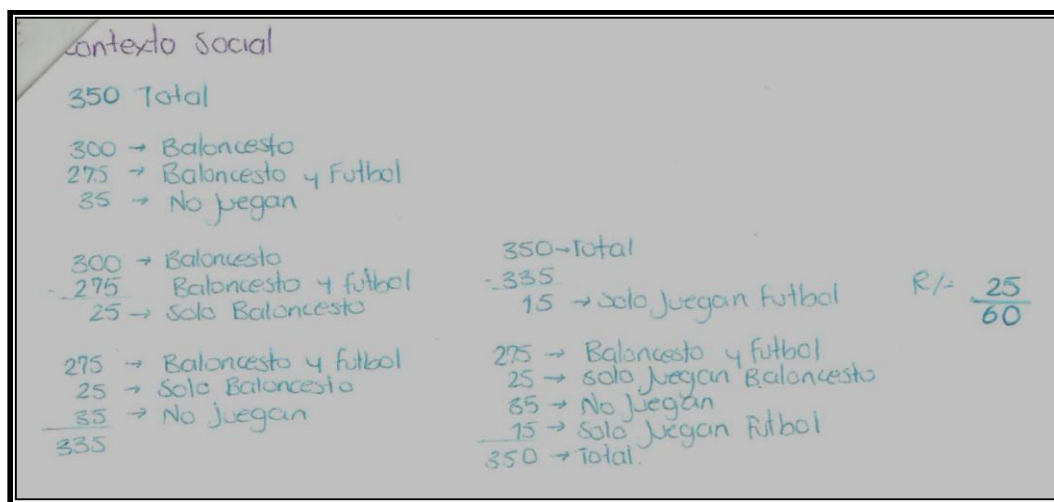 contexto Social
350 Total
300 → Baloncesto
275 → Baloncesto y Futbol
35 → No juegan
300 → Baloncesto
- 275 Baloncesto y futbol
25 → Solo Baloncesto
275 → Baloncesto y futbol
25 → Solo Baloncesto
35 → No Juegan
335
350-Total
-335
15 → Solo Juegan futbol
275 → Baloncesto y futbol
25 → solo Juegan Baloncesto
35 → No Juegan
15 → Solo Juegan Futbol
350 → Total.
R/- 25
60